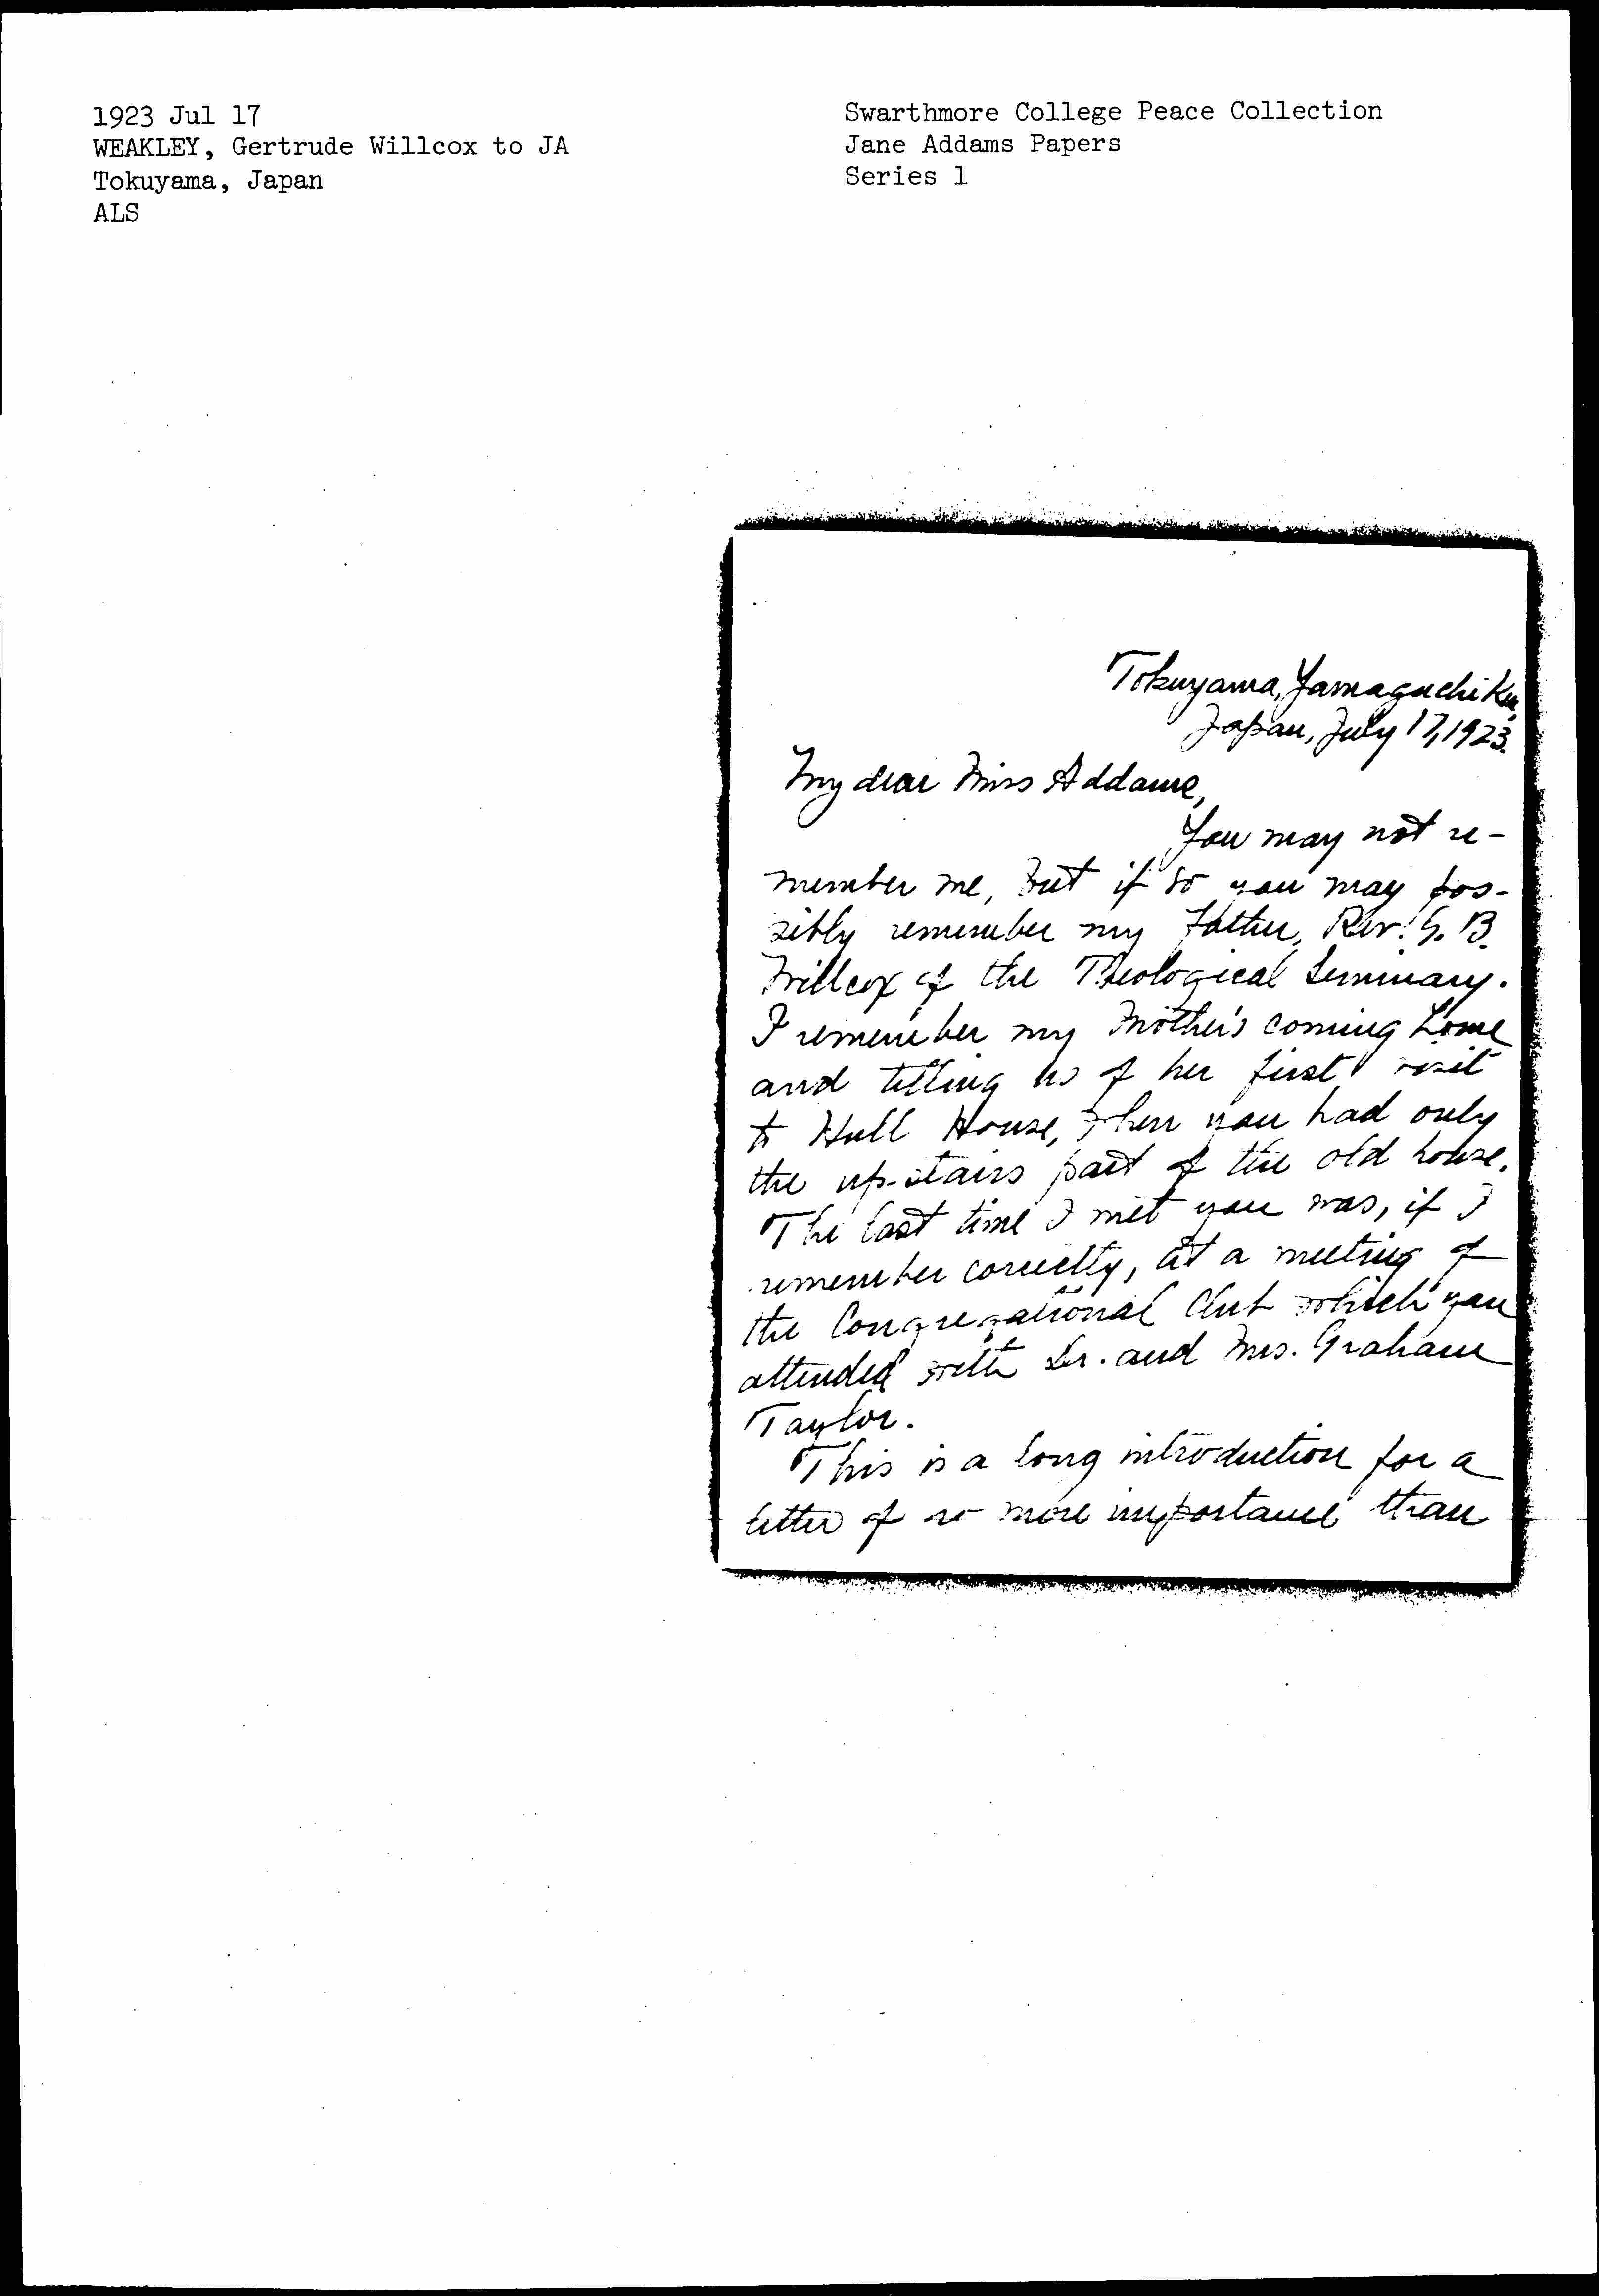 1923 Jul 17
WEAKLEY, Gertrude Willcox to JA
Tokuyama, Japan
ALS
Swarthmore College Peace Collection
Jane Addams Papers
Series 1
Tokuyama, Yamaguchi Ken,
Japan, July 17, 1923.
My dear Miss Addams,
You may not re-
member me, but if so you may pos-
sibly remember my father, Rev. G. B.
Willcox of the Theological Seminary.
I remember my mother's coming home
and telling us of her first visit
to Hull House, when you had only
the up-stairs part of the old house.
The last time I met you was, if I
remember correctly, at a meeting of
the Congregational Club which you
attended with Dr. and Mrs. Graham
Taylor.
This is a long introduction for a
letter of no more importance than